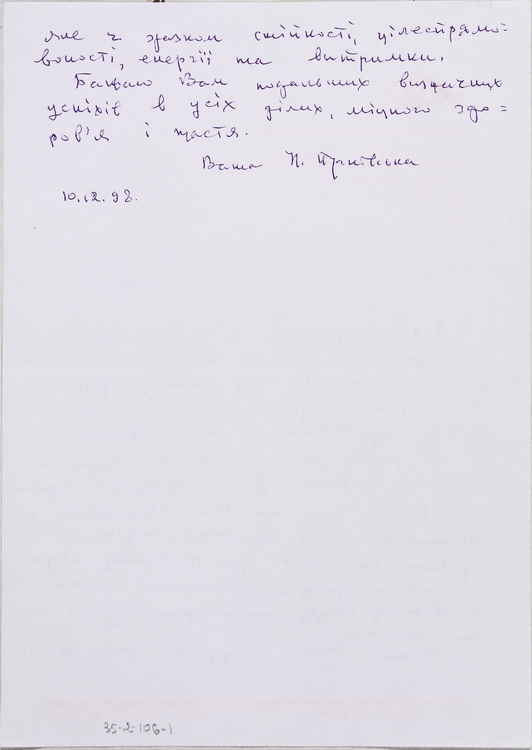 яке є зразком стійкості, цілеспрямо-
ваності, енергії та витримки.
Бажаю Вам подальших визначних
успіхів в усіх ділах, міцного здо=
ров'я і щастя.
Ваша Н.
10.12.98.
35-2-106-1